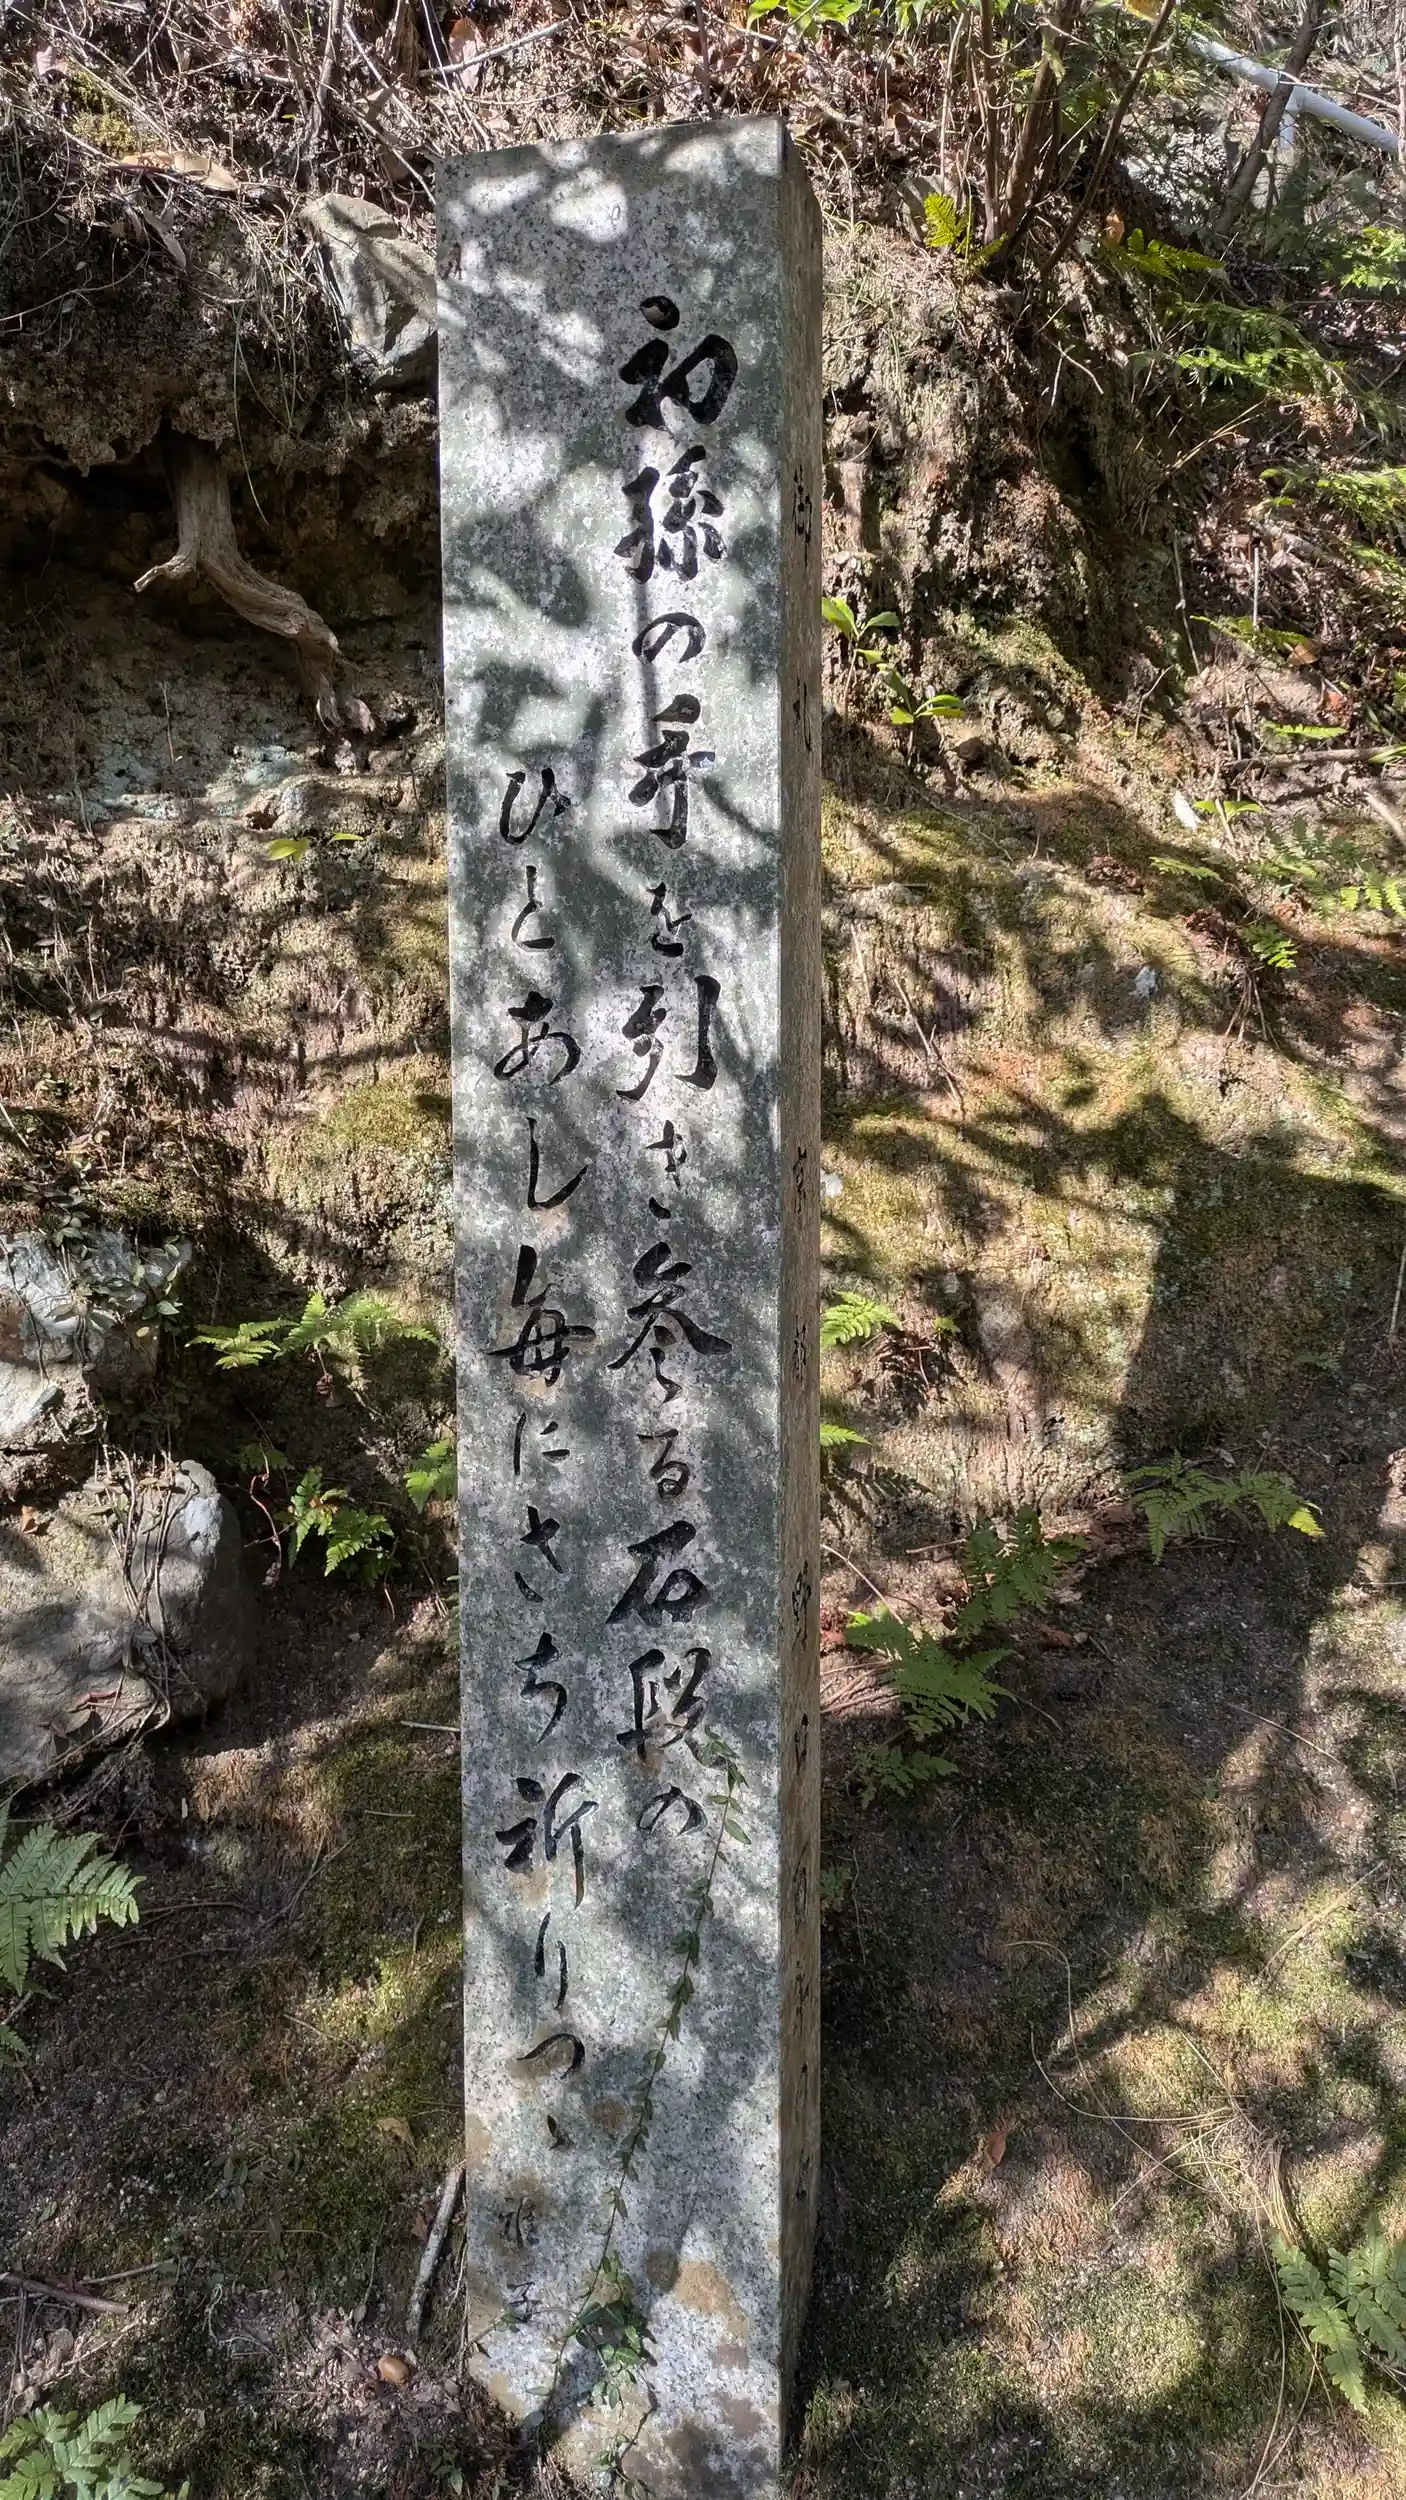 初孫の手を引き参る石段の
ひとあし毎にさち祈りつゝ
雅子